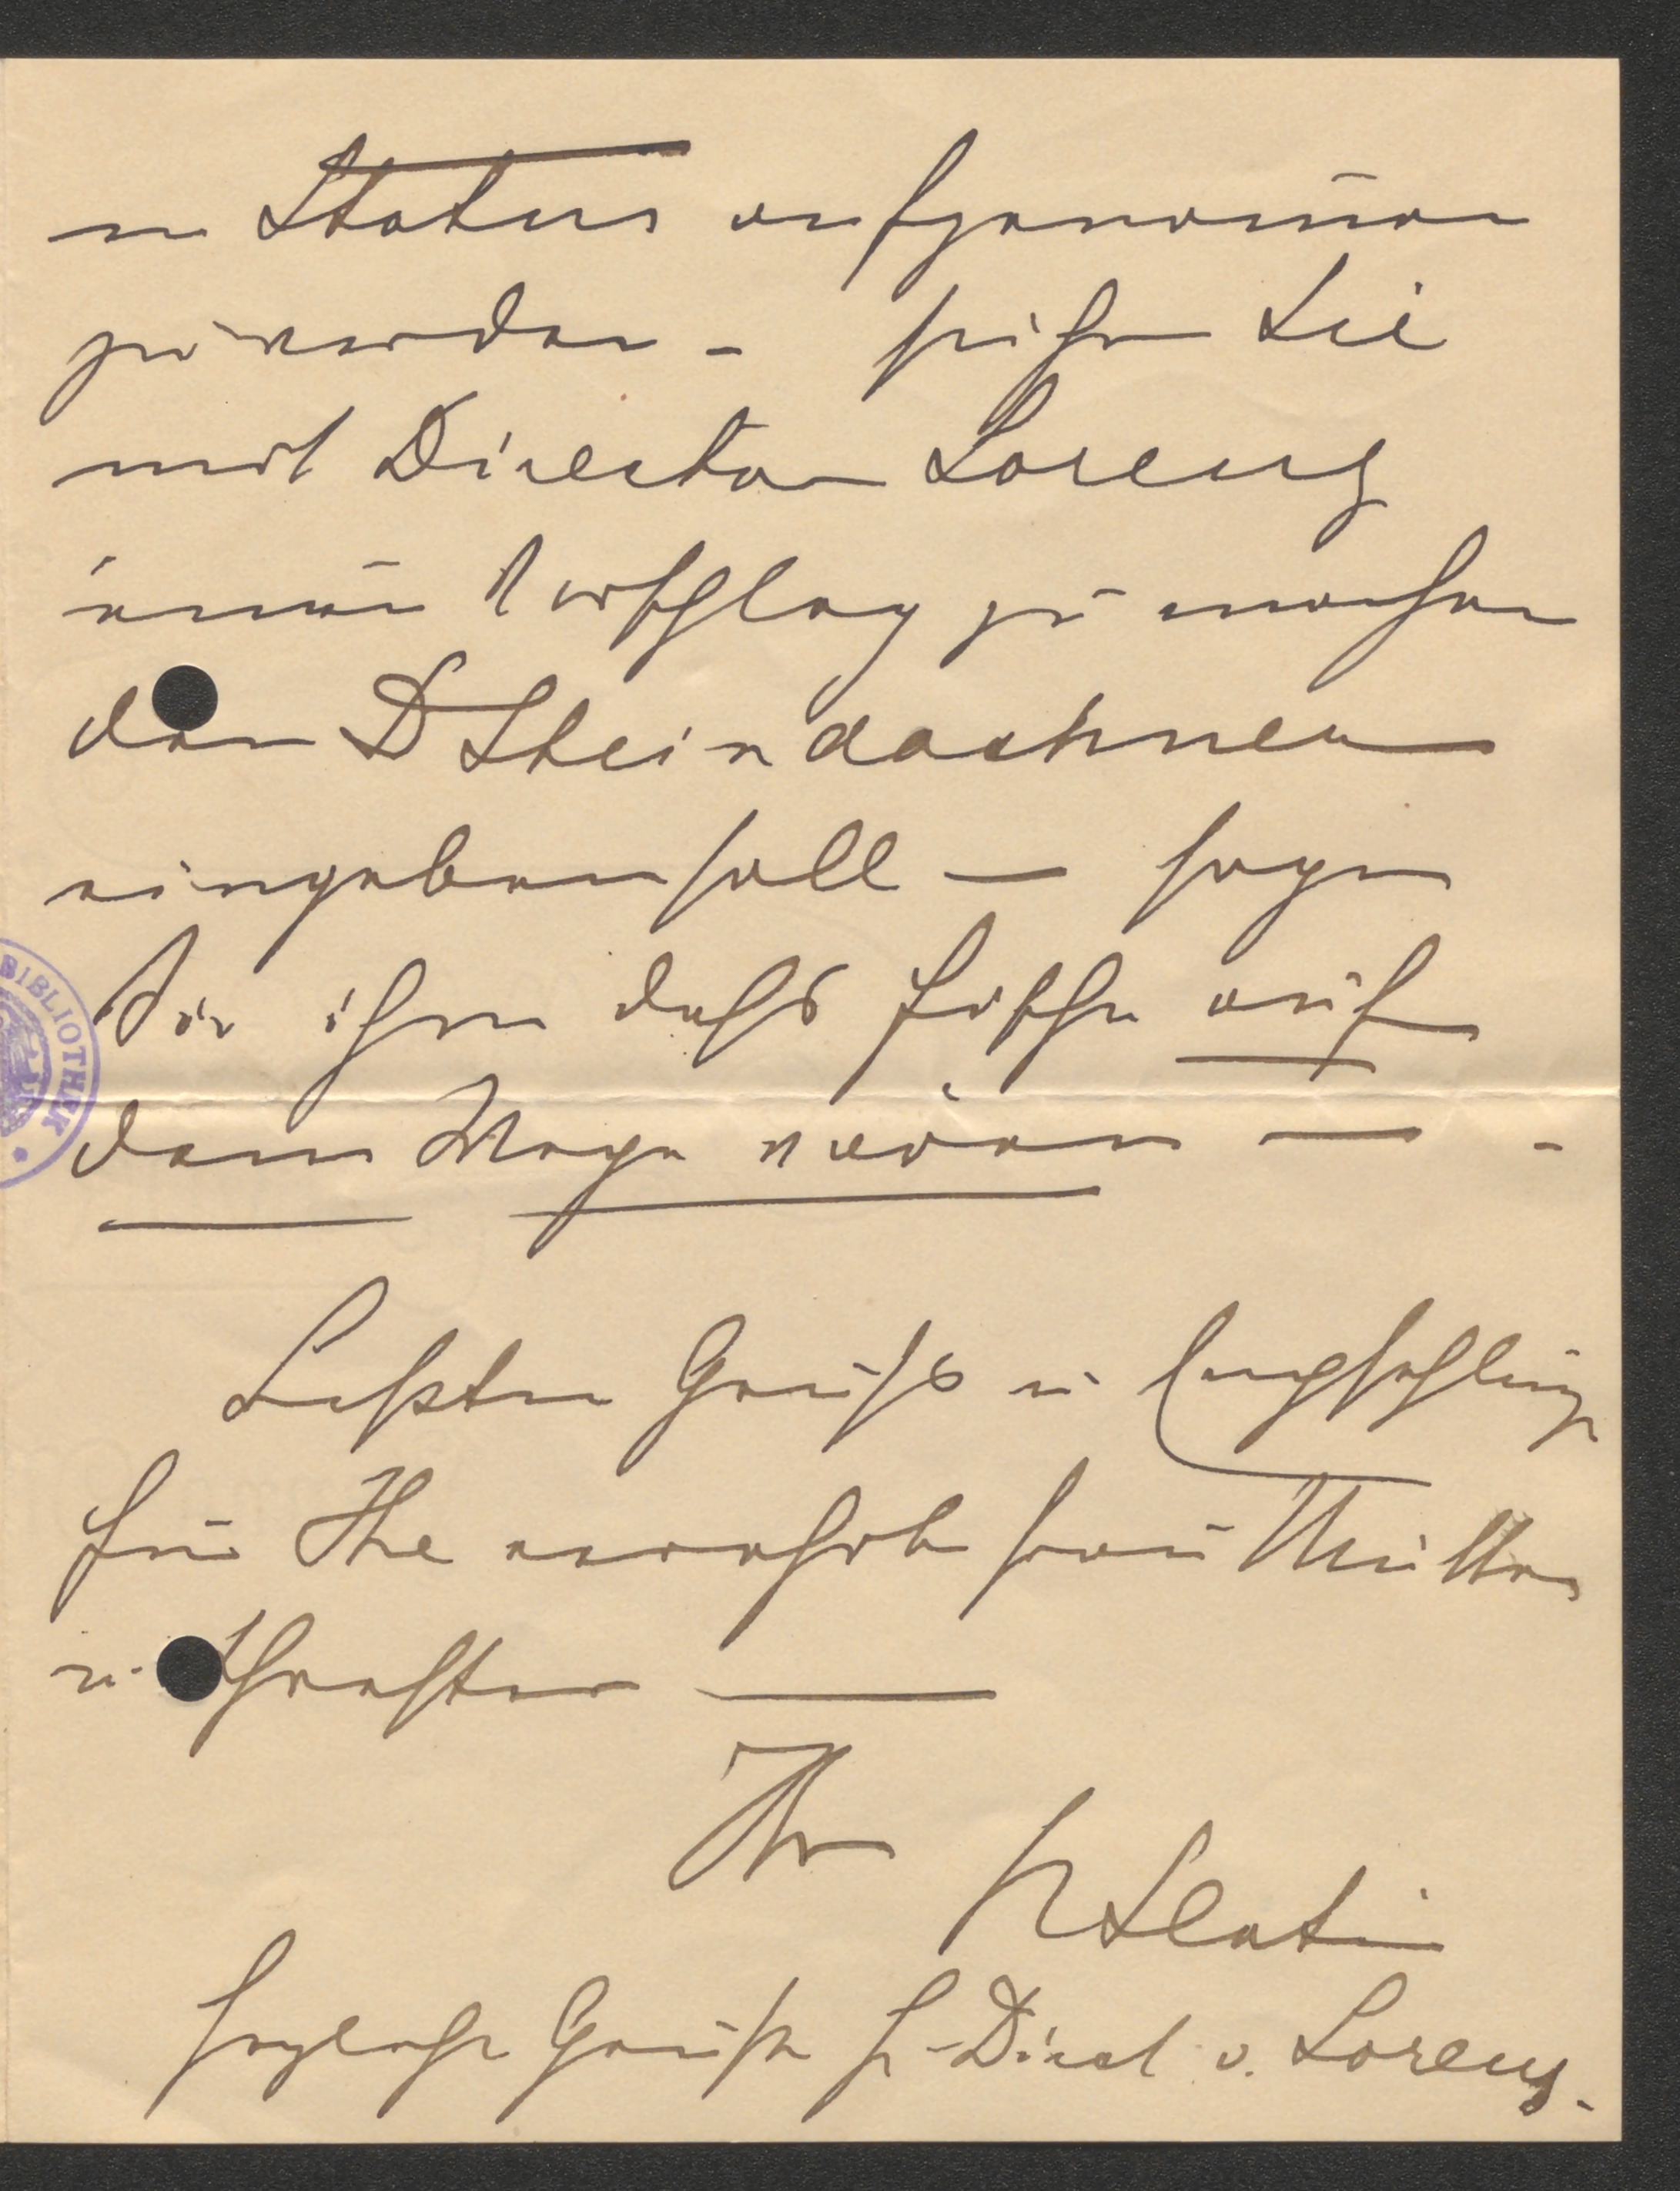 in Status aufgenom̄en
zu werden - suchen Sie
mit Director Lorenz
einen Vorschlag zu machen
den D Steindachner
eingeben soll — sagen
Sie ihm dass Fische auf
dem Wege wären — -
Besten Gruss u Empfehlung
für Ihre verehrte Frau Mutter
u. Schwester —
Ihr
R Slatin
herzliche Grüsse H. Direct v. Lorenz.
BIBLIOTHEK